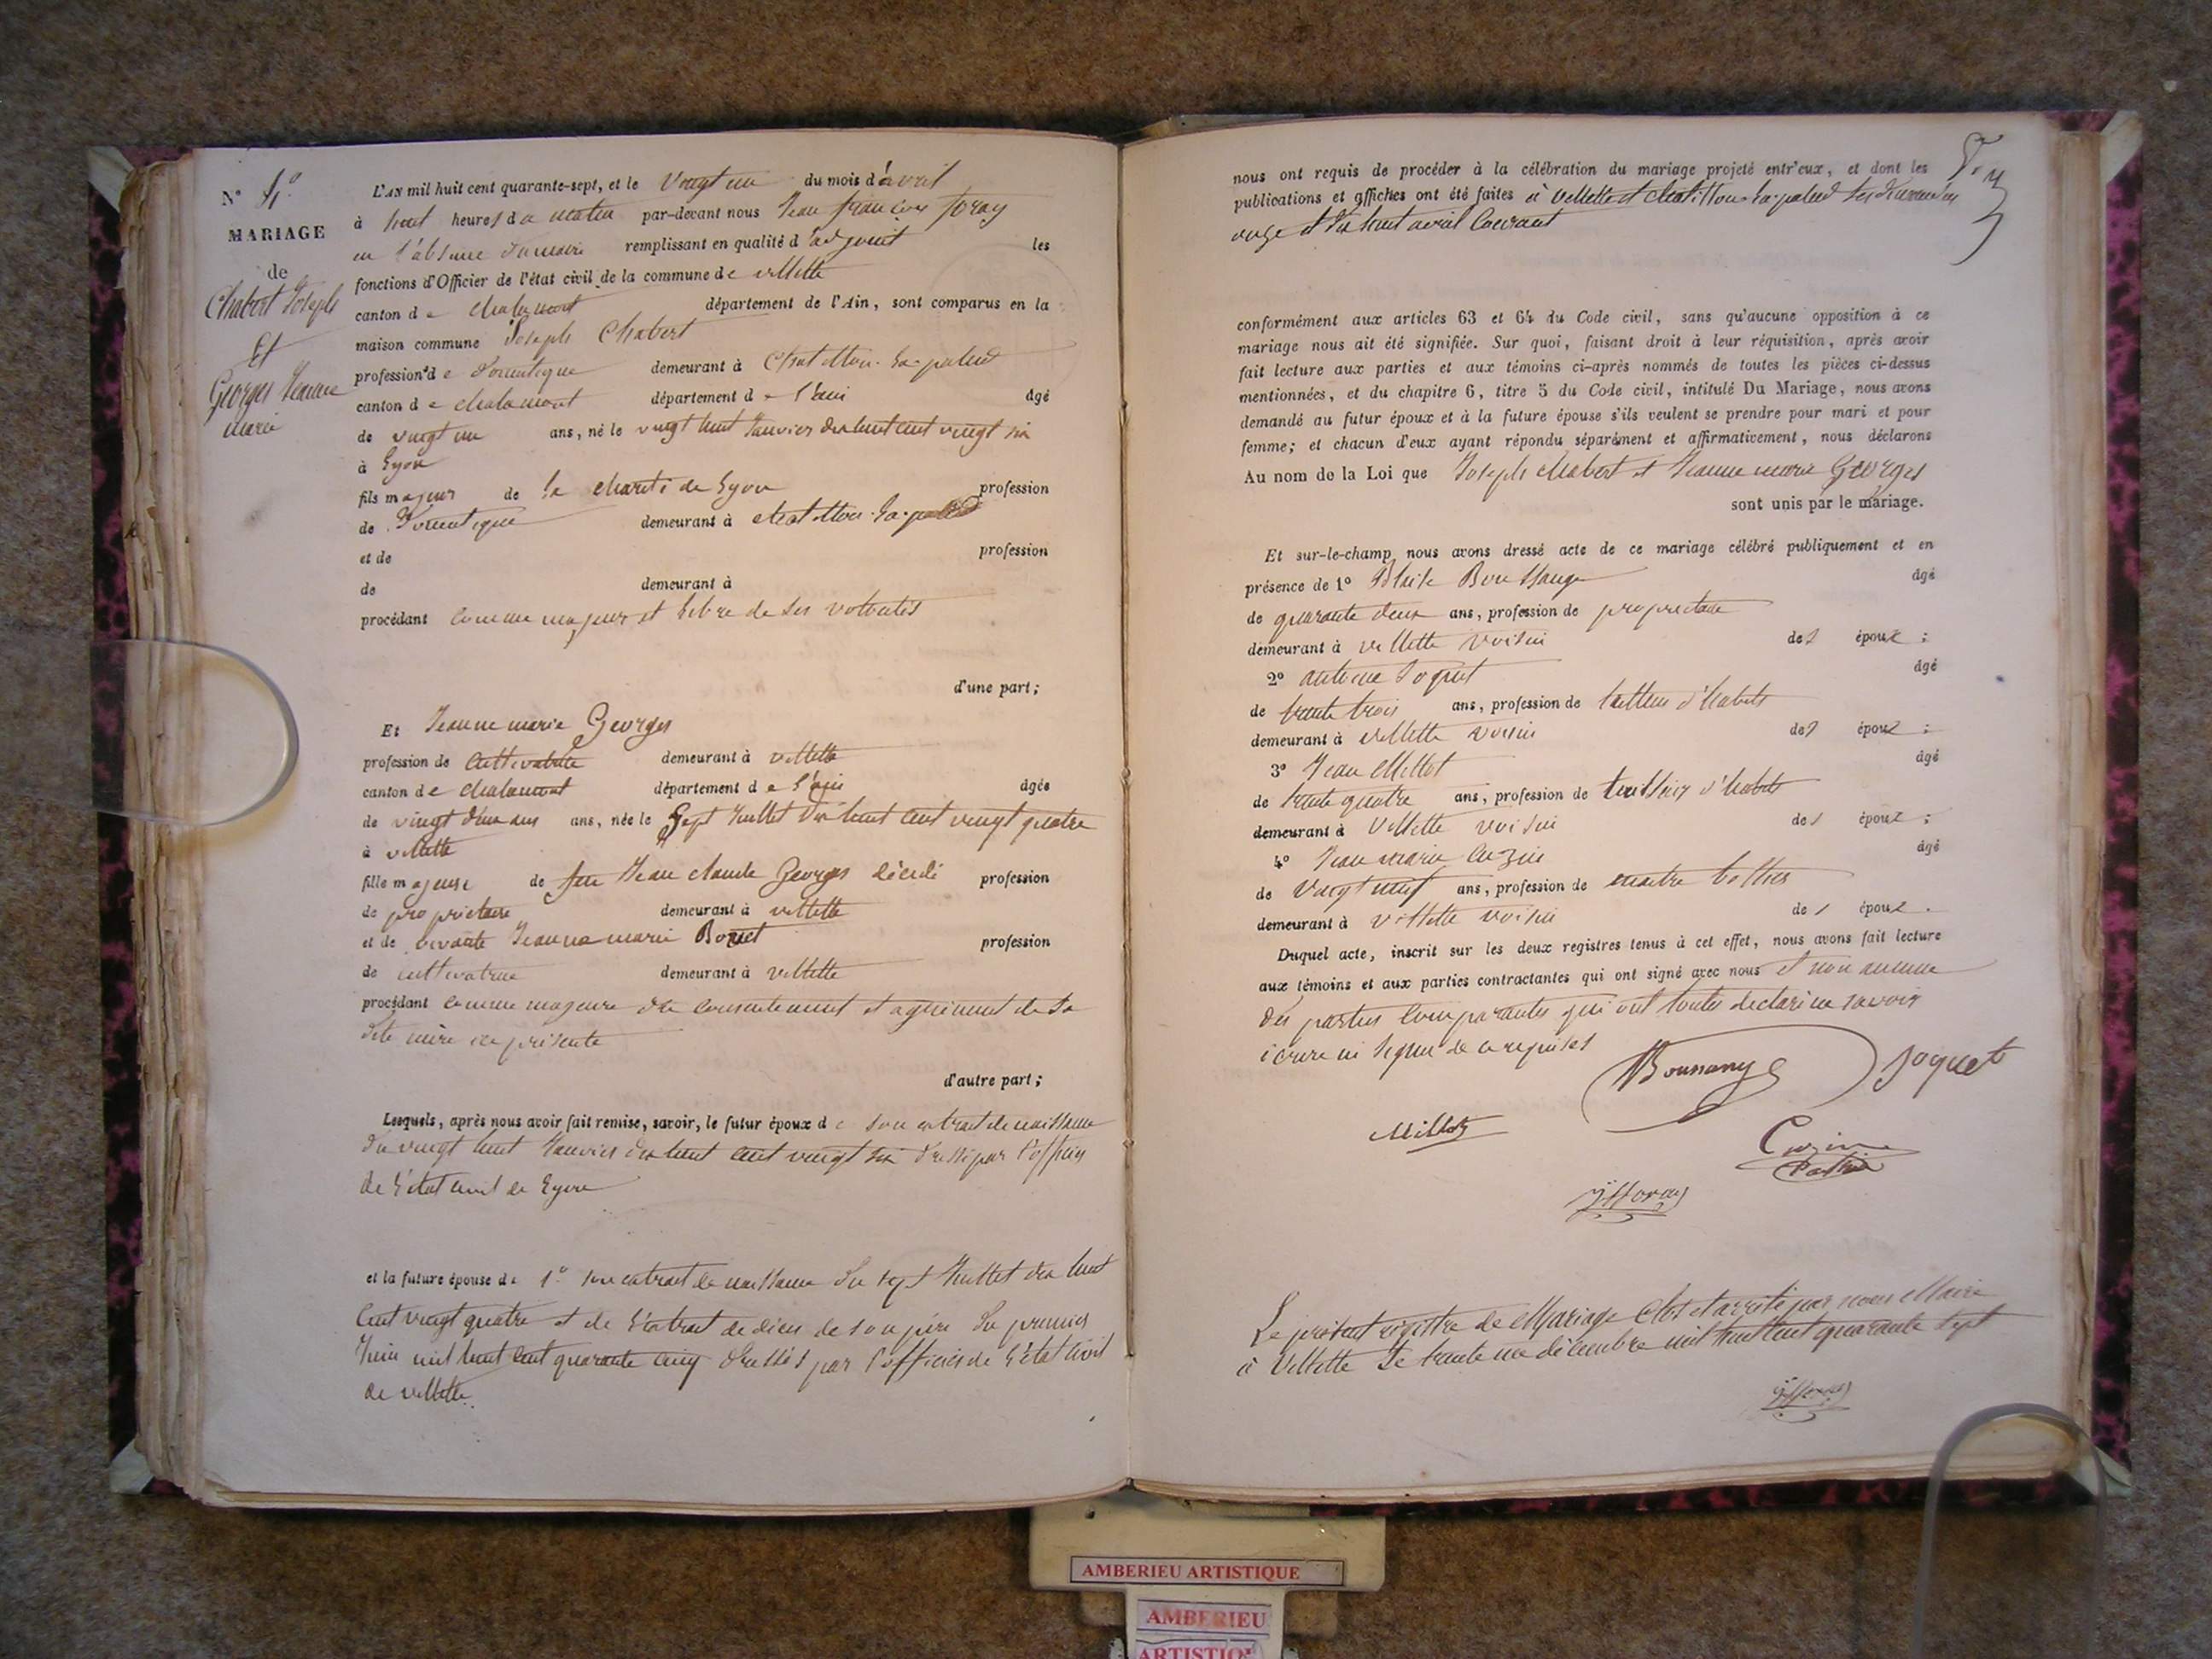 N° 4°
MARIAGE
de
Chabert Joseph
Et
Georges Jeanne
marie
L'AN mil huit cent quarante-sept, et le vingt un du mois d'avril
à huit heures du matin par-devant nous Jean françois foray
en l'absence du maire remplissant en qualité d'adjoint les
fonctions d'Officier de l'état civil de la commune de villette
canton de chalamont département de l'Ain, sont comparus en la
maison commune Joseph Chabert
profession de Domestique demeurant à Chatillon-la-palud
canton de chalamont département de l'ain âgé
de vingt un ans, né le vingt huit Janvier dix huit cent vingt six
à Lyon
fils majeur de la charité de Lyon profession
de Domestique demeurant à chatillon-la-palud
et de profession
de demeurant à
procédant comme majeur et libre de ses volontés
d'une part;
Et Jeanne marie Georges
profession de Cultivatrice demeurant à villette
canton de chalamont département de l'ain âgée
de vingt deux ans ans, née le Sept Juillet dix huit cent vingt quatre
à villette
fille majeure de feu Jean claude Georges décédé profession
de propriétaire demeurant à villette
et de vivante Jeanne marie profession
de cultivatrice demeurant à villette
procédant comme majeure du consentement et agrément de sa
dite mère ici présente
d'autre part;
Lesquels, après nous avoir fait remise, savoir, le futur époux de son extrait de naissance
du vingt huit Janvier dix huit cent vingt six dressé par l'officier
de l'état civil de Lyon
et la future épouse de 1° son extrait de naissance du sept Juillet dix huit
cent vingt quatre et de l'extrait de décès de son père du premier
Juin mil huit cent quarante cinq dressés par l'officier de l'état civil
de villette.
nous ont requis de procéder à la célébration du mariage projeté entr'eux, et dont les
publications et affiches ont été faites à villette et chatillon-la-palud les dimanches
onze et dix huit avril courant
conformément aux articles 63 et 64 du Code civil, sans qu'aucune opposition à ce
mariage nous ait été signifiée. Sur quoi, faisant droit à leur réquisition, après avoir
fait lecture aux parties et aux témoins ci-après nommés de toutes les pièces ci-dessus
mentionnées, et du chapitre 6, titre 5 du Code civil, intitulé Du Mariage, nous avons
demandé au futur époux et à la future épouse s'ils veulent se prendre pour mari et pour
femme; et chacun d'eux ayant répondu séparément et affirmativement, nous déclarons
Au nom de la Loi que Joseph chabert et Jeanne marie Georges
sont unis par le mariage.
Et sur-le-champ nous avons dressé acte de ce mariage célébré publiquement et en
présence de 1° Blaise âgé
de quarante deux ans, profession de propriétaire
demeurant à villette voisin des époux ;
2° antoine Joquet âgé
de trente trois ans, profession de tailleur d'habits
demeurant à villette voisin des époux ;
3° Jean Millot âgé
de trente quatre ans, profession de d'habits
demeurant à Villette voisin des époux ;
4° Jean marie Cuzin âgé
de vingt neuf ans, profession de
demeurant à villette voisin des époux.
Duquel acte, inscrit sur les deux registres tenus à cet effet, nous avons fait lecture
aux témoins et aux parties contractantes qui ont signé avec nous et non aucune
des parties comparantes qui ont toutes déclaré ne savoir
écrire ni signer de ce requises
Joquet
Millot
Cuzin
Le présent régistre de Mariage Clos et arrêté par nous Maire
à Villette le trente un décembre mil huit cent quarante sept
AMBERIEU ARTISTIQUE
AMBERIEU
ARTISTIQUE